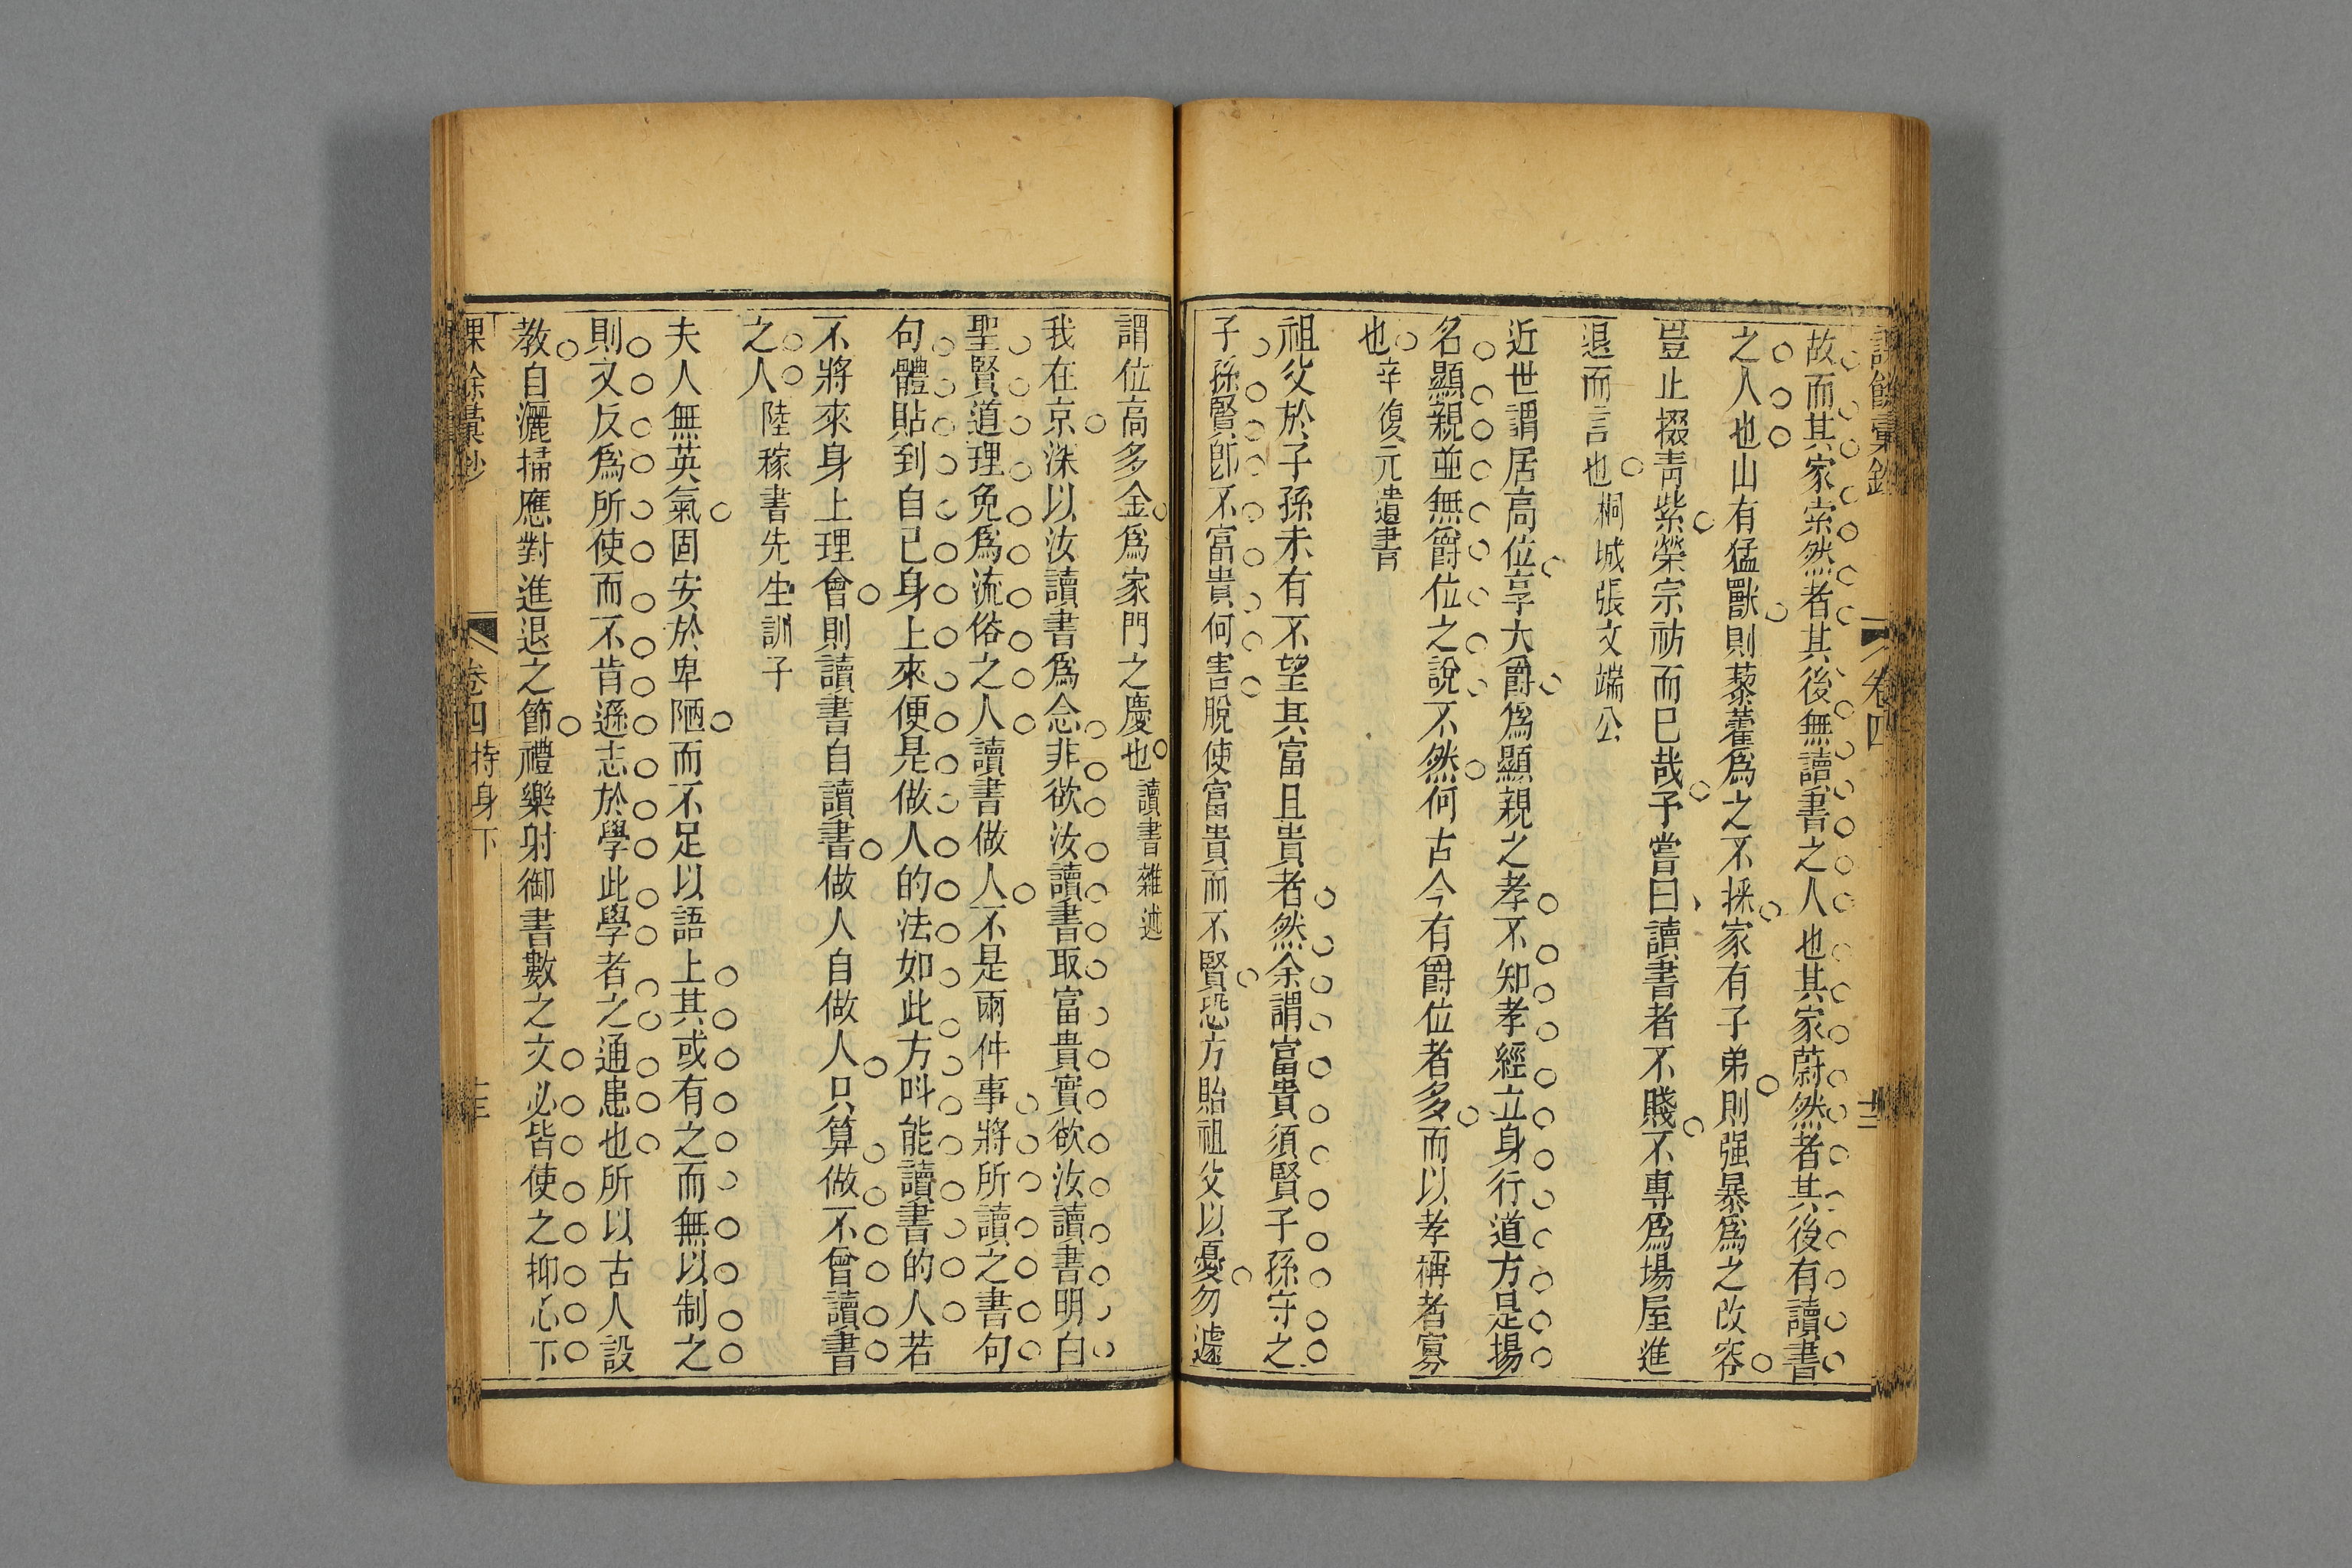 課餘彙鈔 卷四 十二
故而其家索然者其後無讀書之人也其家蔚然者其後有讀書
之人也山有猛獸則藜藿爲之不採家有子弟則强暴爲之改容
豈止掇靑紫榮宗祊而已哉予嘗曰讀書者不賤不專爲場屋進
退而言也 桐城張文端公
近世謂居高位享大爵爲顯親之孝不知孝經立身行道方是揚
名顯親並無爵位之說不然何古今有爵位者多而以孝稱者寡
也 辛復元遺書
祖父於子孫未有不望其富且貴者然余謂富貴須賢子孫守之
子孫賢卽不富貴何害脫使富貴而不賢恐方貽祖父以憂勿遽
謂位高多金爲家門之慶也 讀書雜述
我在京深以汝讀書爲念非欲汝讀書取富貴實欲汝讀書明白
聖賢道理免爲流俗之人讀書做人不是兩件事將所讀之書句
句體貼到自己身上來便是做人的法如此方叫能讀書的人若
不將來身上理會則讀書自讀書做人自做人只算做不曾讀書
之人 陸稼書先生訓子
夫人無英氣固安於卑陋而不足以語上其或有之而無以制之
則又反爲所使而不肯遜志於學此學者之通患也所以古人設
教自灑掃應對進退之節禮樂射御書數之文必皆使之抑心下
課餘彙鈔 卷四 持身下 十三